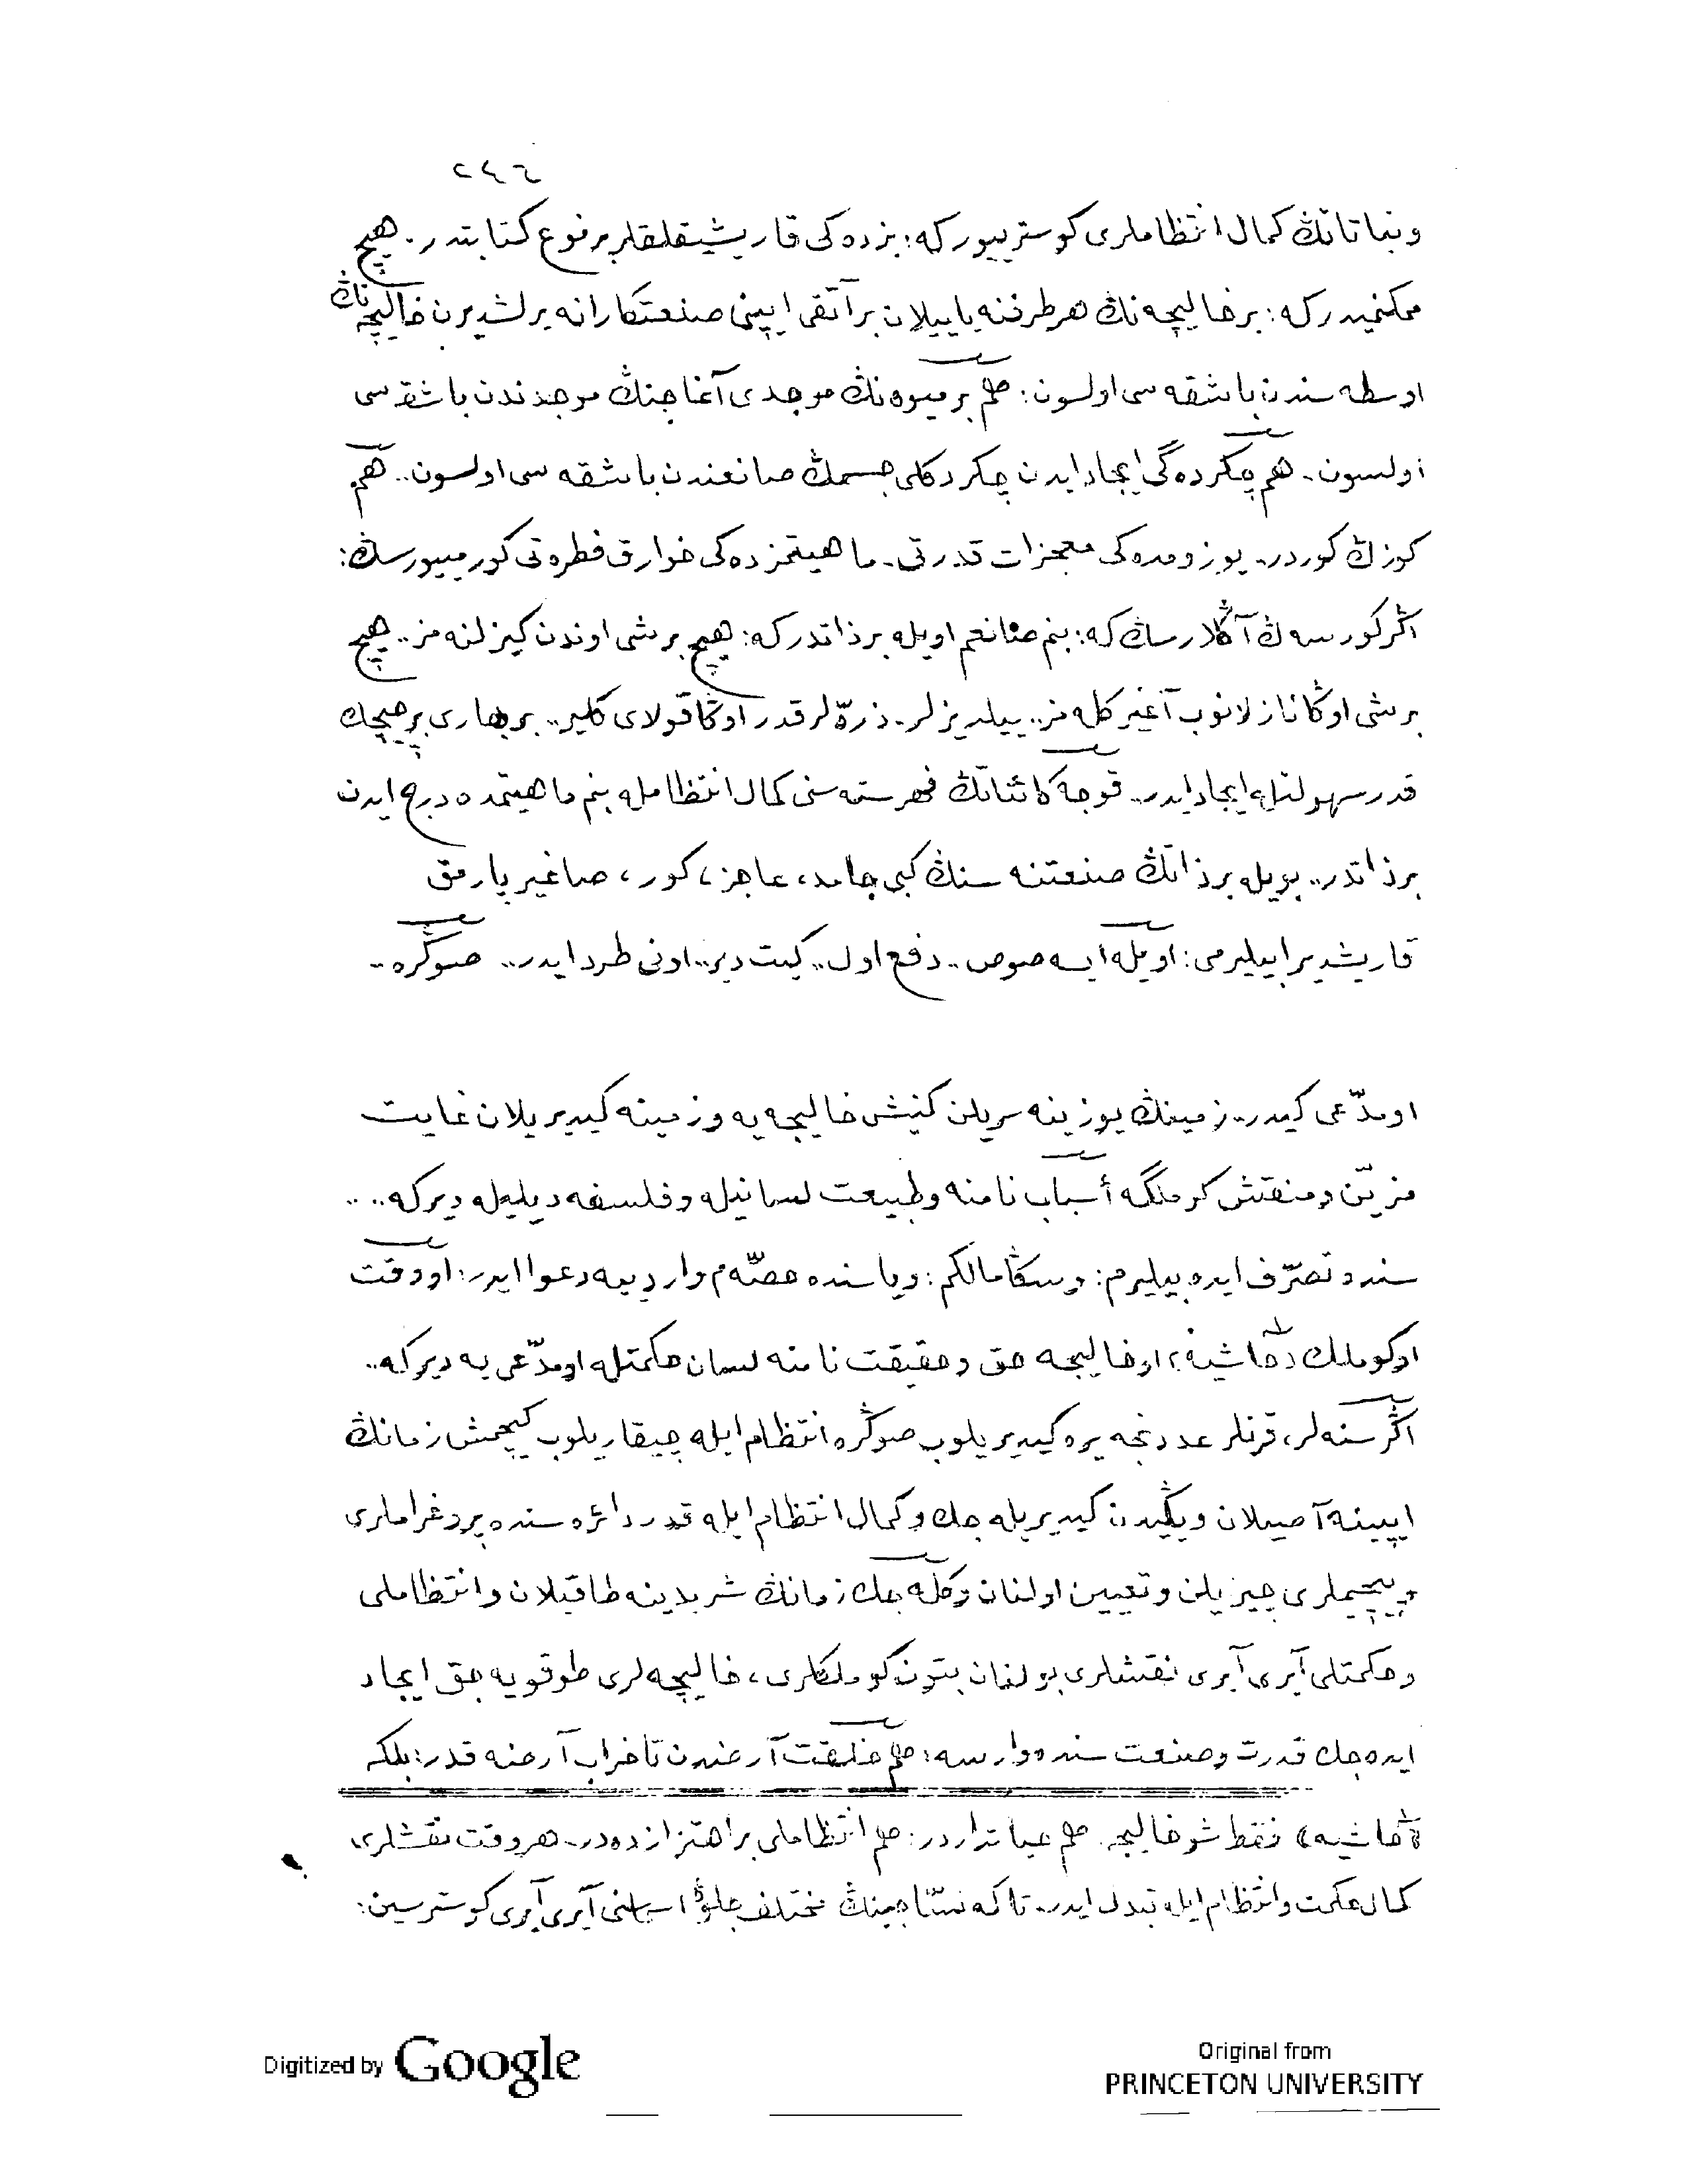 ٢٤٦
ونباتاتڭ كمال انتظاملرى كوستريیور كه: بزده كى قاریشیقلقلر بر نوع كتابتدر. هیچ
ممكنمیدر كه: بر خالیچه نڭ هر طرفنه یاییلان بر آتقى ایپنى صنعتكارانه یرلشدیرن خالیچه نڭ
اوسطه سندن باشقه سى اولسون: هم بر میوه نڭ موجدى آغاجنڭ موجدندن باشقه سى
اولسون. هم چكرده گى ایجاد ایدن چكردكلى جسمڭ صانعندن باشقه سى اولسون.. هم
كوزڭ كوردر. یوزومده كى معجزات قدرتى. ماهیتمزده كى خوارق فطرتى كورمییورسڭ:
اڭر كورسه ڭ آڭلارسڭ كه: بنم صانعم اویله بر ذاتدر كه: هیچ بر شى اوندن كیزلنه مز.. هیچ
بر شى اوڭا نازلانوب آغیر كله مز.. ییلدیزلر. ذرّه لر قدر اوڭا قولاى كلیر.. بر بهارى بر چیچك
قدر سهولتله ایجاد ایدر.. قوجه كائناتڭ فهرسته سنى كمال انتظامله بنم ماهیتمده درج ایدن
بر ذاتدر.. بویله بر ذاتڭ صنعتنه سنڭ كبى جامد، عاجز، كور، صاغیر پارمق
قاریشدیرا بیلیرمى: اویله ایسه صوص.. دفع اول.. كیت دیر.. اونى طرد ایدر.. صوڭره..
او مدّعى كیدر.. زمینڭ یوزینه سریلن كنیش خالیچه یه و زمینه كیدیریلان غایت
مزیّن و منقش كوملگه أسباب نامنه و طبیعت لسانیله و فلسفه دیلیله دیر كه....
سنده تصرّف ایده بیلیرم: و سڭا مالكم: ویا سنده حصّه م وار دییه دعوا ایدر: او وقت
او كوملك (حاشیه)، او خالیچه حق و حقیقت نامنه لسان حكمتله او مدّعى یه دیر كه..
اڭر سنه لر، قرنلر عددنجه یره كیدیریلوب صوڭره انتظام ایله چیقاریلوب كیچمش زمانڭ
ایپینه آصیلان و یڭیدن كیدیریله جك و كمال انتظام ایله قدر دائره سنده پروغراملرى
و بیچیملرى چیزیلن و تعیین اولنان و كله جك زمانڭ شریدینه طاقیلان و انتظاملى
و حكمتلى آیرى آیرى نقشلرى بولنان بتون كوملكلرى، خالیچه لرى طوقویه جق ایجاد
ایده جك قدرت و صنعت سنده وارسه: هم خلقت آرضدن تا خراب آرضه قدر: بلكه
(حاشیه) فقط شو خالیچه هم حیاتداردر: هم انتظاملى بر اهتزازده در. هر وقت نقشلرى
كمال حكمت و انتظام ایله تبدل ایدر. تا كه نسّاجینڭ مختلف جلوهٔ اسماسنى آیرى آیرى كوسترسین:
Digitized by Google
Original from
PRINCETON UNIVERSITY